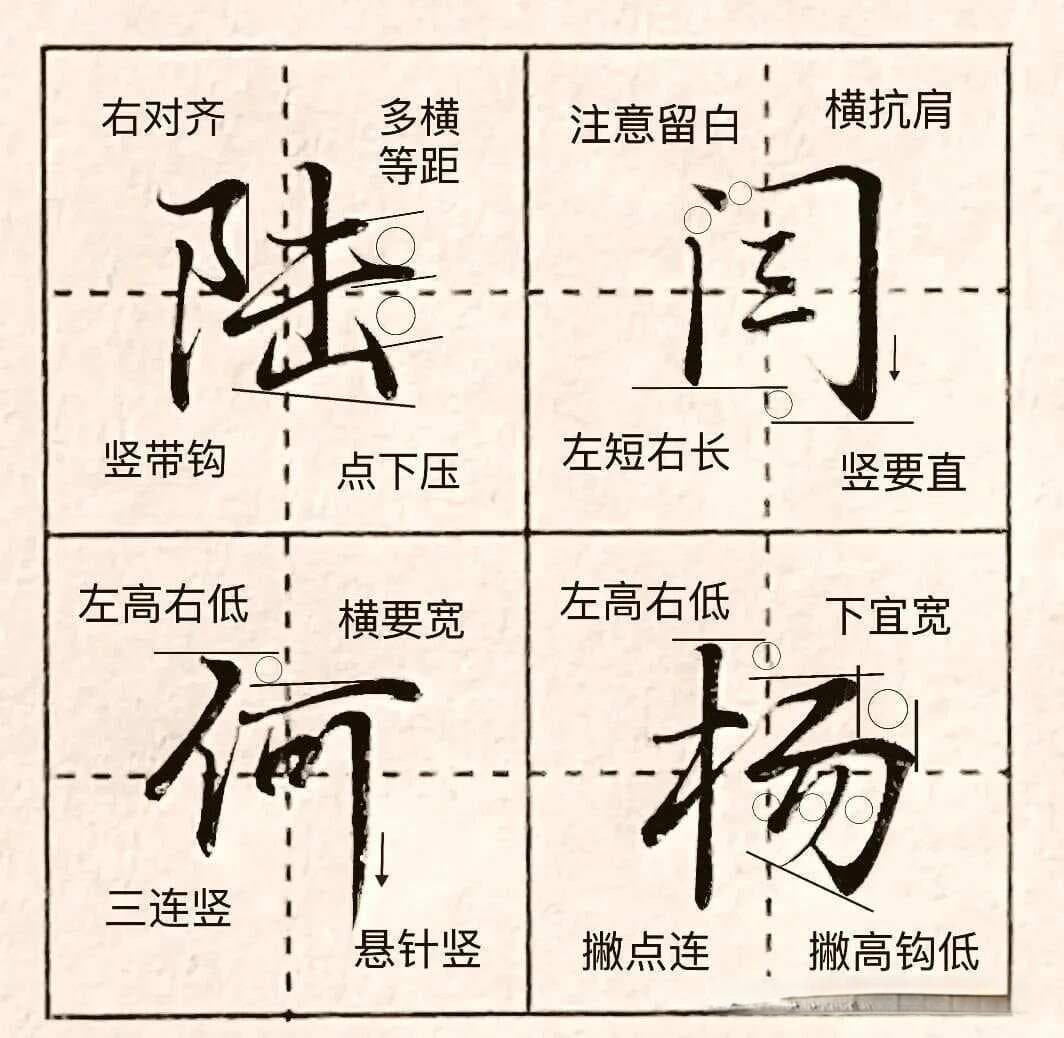 右对齐
多横
等距
陆
竖带钩
点下压
注意留白
横抗肩
闫
左短右长
竖要直
左高右低
横要宽
何
三连竖
悬针竖
左高右低
下宜宽
杨
撇点连
撇高钩低